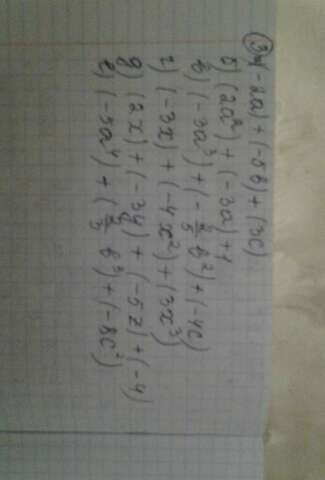 ③ а) (-2a) + (-5b) + (3c)
б) (2a²) + (-3a) + 1
в) (-3a³) + (-2/5 b²) + (-4c)
г) (-3x) + (-4x²) + (3x³)
д) (2x) + (-3y) + (-5z) + (-4)
е) (-5a⁴) + (2/3 b³) + (-8c²)